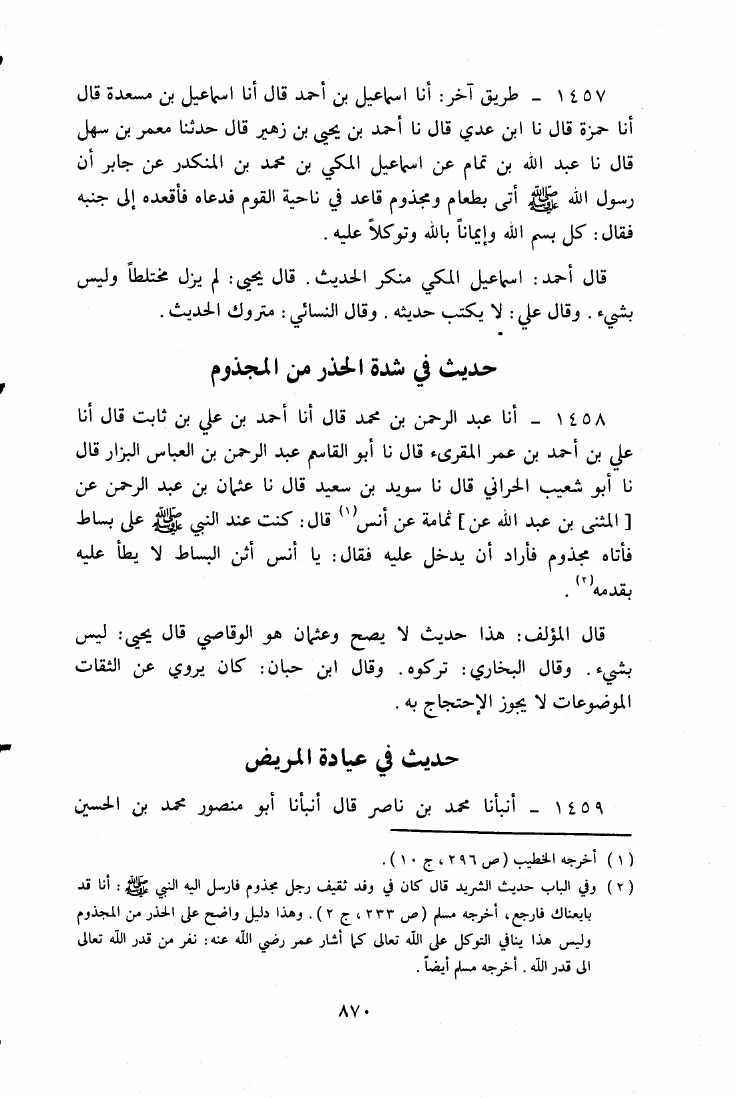 ١٤٥٧ - طريق آخر: أنا اسماعيل بن أحمد قال أنا اسماعيل بن مسعدة قال
أنا حمزة قال نا ابن عدي قال نا أحمد بن يحيى بن زهير قال حدثنا معمر بن سهل
قال نا عبد الله بن تمام عن اسماعيل المكي بن محمد بن المنكدر عن جابر أن
رسول الله ﷺ أتى بطعام ومجذوم قاعد في ناحية القوم فدعاه فأقعده إلى جنبه
فقال: كل بسم الله وإيماناً بالله وتوكلاً عليه.
قال أحمد: اسماعيل المكي منكر الحديث. قال يحيى: لم يزل مختلطاً وليس
بشيء. وقال علي: لا يكتب حديثه. وقال النسائي: متروك الحديث.
حديث في شدة الحذر من المجذوم
١٤٥٨ - أنا عبد الرحمن بن محمد قال أنا أحمد بن علي بن ثابت قال أنا
علي بن أحمد بن عمر المقرىء قال نا أبو القاسم عبد الرحمن بن العباس البزار قال
نا أبو شعيب الحراني قال نا سويد بن سعيد قال نا عثمان بن عبد الرحمن عن
[المثنى بن عبد الله عن] ثمامة عن أنس(١) قال: كنت عند النبي ﷺ على بساط
فأتاه مجذوم فأراد أن يدخل عليه فقال: يا أنس أثن البساط لا يطأ عليه
بقدمه(٢).
قال المؤلف: هذا حديث لا يصح وعثمان هو الوقاصي قال يحيى: ليس
بشيء. وقال البخاري: تركوه. وقال ابن حبان: كان يروي عن الثقات
الموضوعات لا يجوز الإحتجاج به.
حديث في عيادة المريض
١٤٥٩ - أنبأنا محمد بن ناصر قال أنبأنا أبو منصور محمد بن الحسين
(١) أخرجه الخطيب (ص ٢٩٦، ج ١٠).
(٢) وفي الباب حديث الشريد قال كان في وفد ثقيف رجل مجذوم فارسل اليه النبي ﷺ: أنا قد
بايعناك فارجع، أخرجه مسلم (ص ٢٣٣، ج ٢). وهذا دليل واضح على الحذر من المجذوم
وليس هذا ينافي التوكل على الله تعالى كما أشار عمر رضي الله عنه: نفر من قدر الله تعالى
الى قدر الله. أخرجه مسلم أيضاً.
٨٧٠